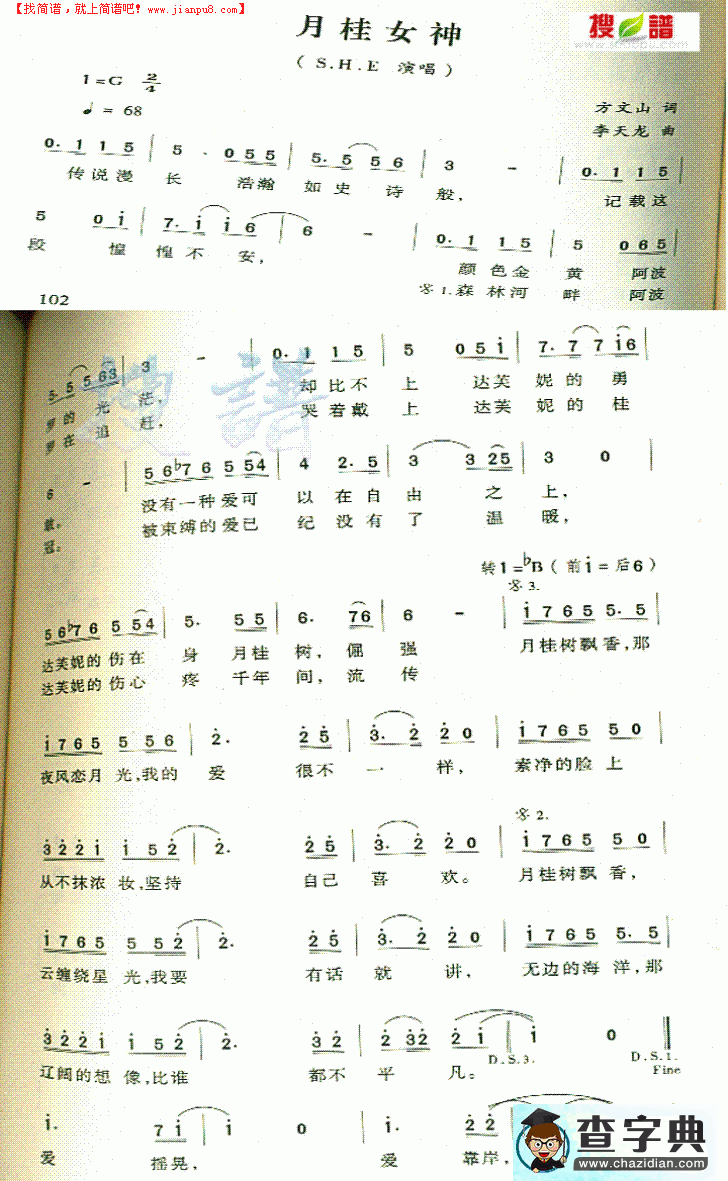 【找简谱，就上简谱吧！www.jianpu8.com】
搜 谱
www.sooopu.com
月桂女神
（S.H.E 演唱）
1=G 2/4
♩= 68
方文山 词
李天龙 曲
0. 1 1 5 | 5 . 0 5 5 | 5. 5 5 6 | 3 - | 0. 1 1 5 |
传说漫 长 浩瀚 如史诗 般， 记载这
5 0 i | 7. i i 6 | 6 - | 0. 1 1 5 | 5 0 6 5 |
段 惶 惶不 安， 颜色金 黄 阿波
𝄋1.森林河 畔 阿波
102
5. 5 5 6 3 | 3 - | 0. 1 1 5 | 5 0 5 i | 7. 7 7 i 6 |
罗的光 茫， 却比不 上 达芙 妮的勇
罗在追 赶， 哭着戴 上 达芙 妮的桂
6 - | 5 6 ♭7 6 5 5 4 | 4 2. 5 | 3 3 2 5 | 3 0 |
敢。 没有一种爱可 以在自由 之上，
冠： 被束缚的爱已 纪没有了 温暖，
转1=♭B（前i=后6）
𝄋3.
5 6 ♭7 6 5 5 4 | 5. 5 5 | 6. 7 6 | 6 - | i 7 6 5 5. 5 |
达芙妮的伤在 身 月桂 树，倔 强 月桂树飘香,那
达芙妮的伤心 疼 千年 间，流 传
i 7 6 5 5 5 6 | 2. 2 5 | 3. 2 2 0 | i 7 6 5 5 0 |
夜风恋月 光,我的 爱 很不 一 样， 素净的脸上
𝄋2.
3 2 2 1 1 5 2 | 2. 2 5 | 3. 2 2 0 | i 7 6 5 5 0 |
从不抹浓 妆,坚持 自己 喜 欢。 月桂树飘香，
i 7 6 5 5 5 2 | 2. 2 5 | 3. 2 2 0 | i 7 6 5 5. 5 |
云缠绕星 光,我要 有话 就 讲， 无边的海洋,那
3 2 2 i i 5 2 | 2. 3 2 | 2 3 2 2 i | i 0 ‖
辽阔的想 像,比谁 都不 平 凡。
D.S.3. D.S.1.
Fine
i. 7 i | i 0 | i. 2 2
爱 摇晃， 爱 靠岸，
查字典
www.chazidian.com